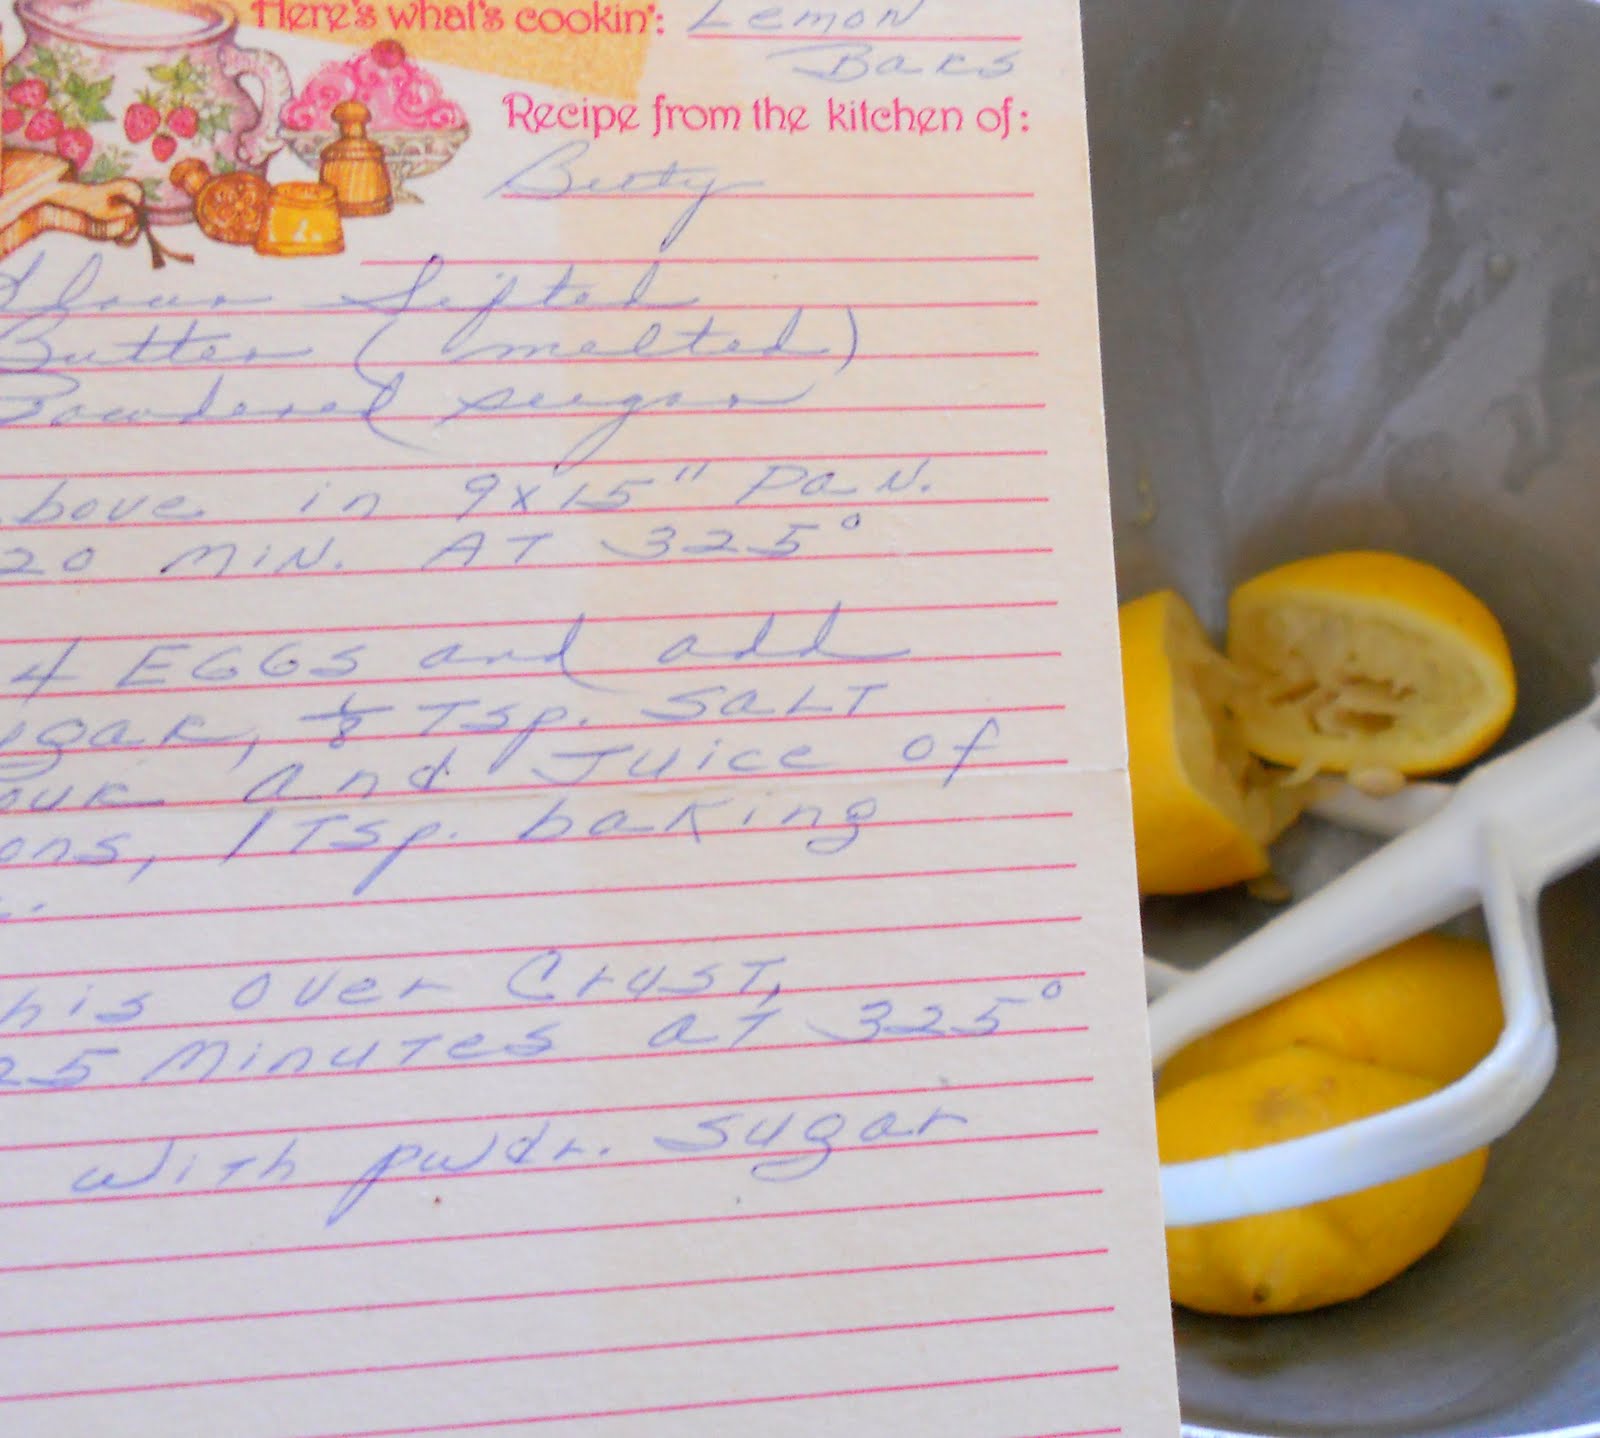 Here's what's cookin': Lemon
Bars
Recipe from the kitchen of:
Betty
Flour Sifted
Butter (melted)
Powdered sugar
bove in 9x15" Pan.
20 MIN. AT 325°
4 EGGS and add
gar, 1/8 Tsp. SALT
our and Juice of
ons, 1 Tsp. baking
his over Crust,
25 Minutes at 325°
with pwdr. Sugar